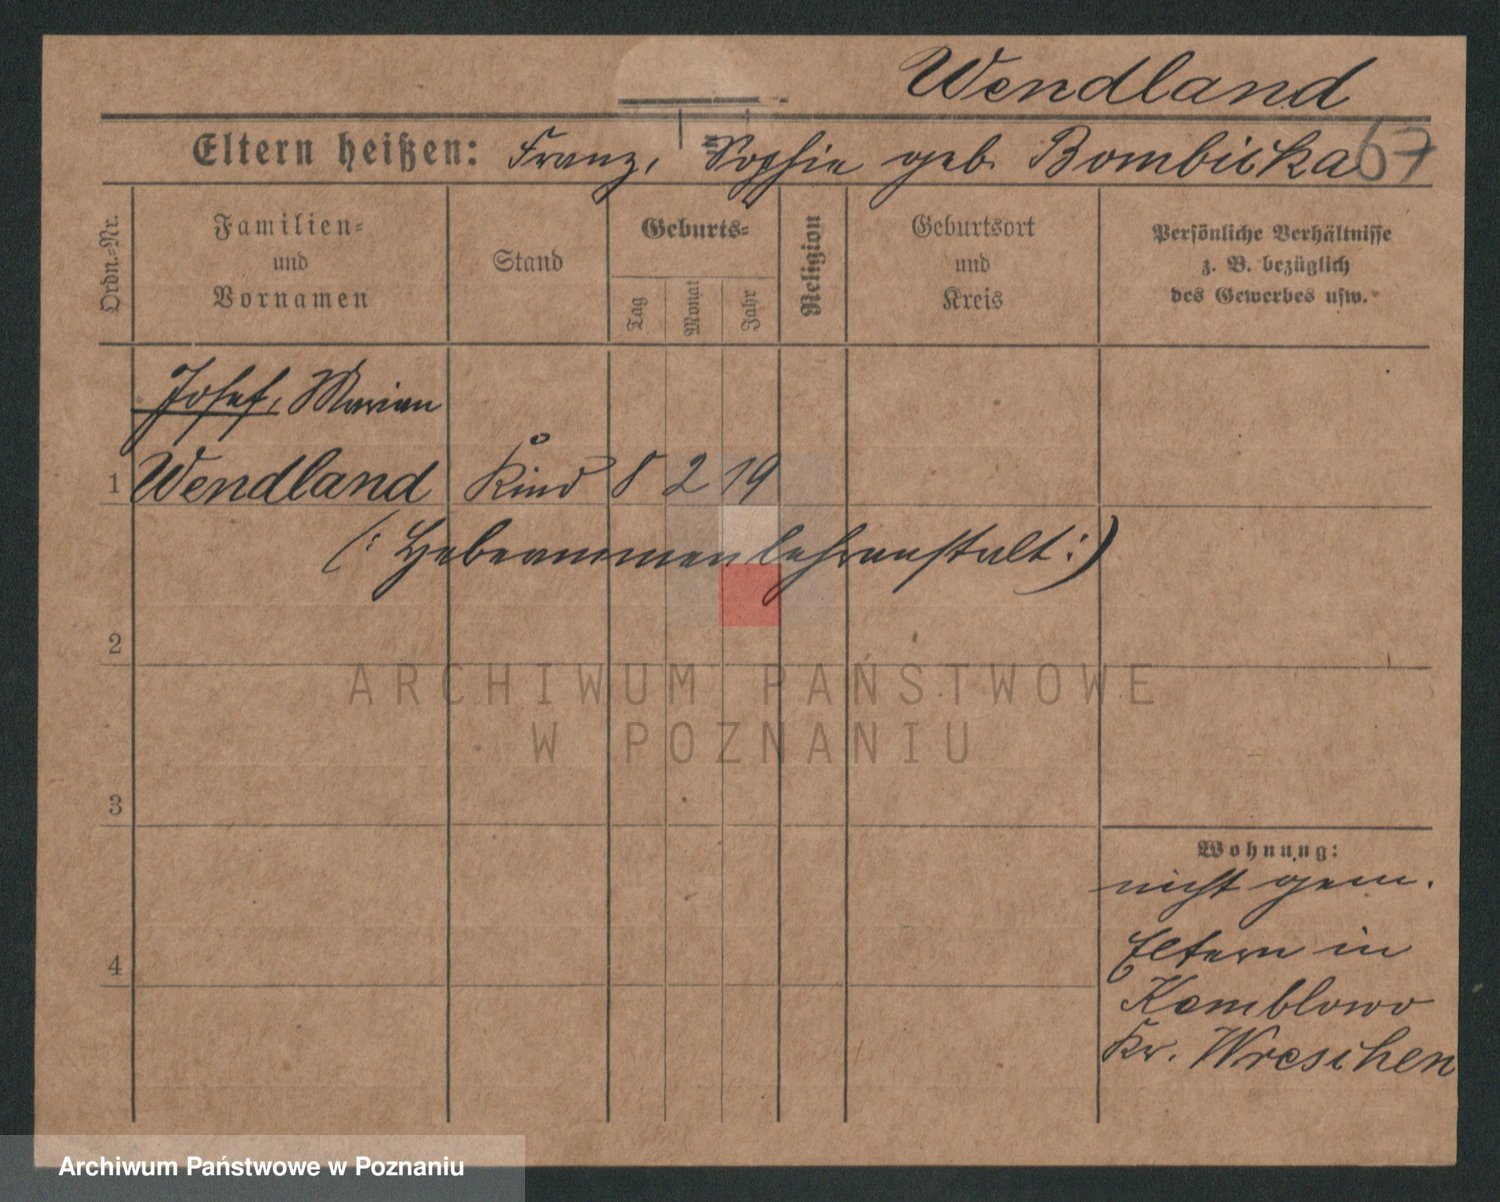 Wendland
Eltern heißen: Franz, Sophie geb. Bombicka 67
Ordn.-Nr.
Familien-
und
Vornamen
Stand
Geburts-
Tag
Monat
Jahr
Religion
Geburtsort
und
Kreis
Persönliche Verhältnisse
z. B. bezüglich
des Gewerbes usw.
Josef, Marian
1 Wendland Kind 8 2 19
(: Hebeammenlehranstalt :)
2
ARCHIWUM PAŃSTWOWE
W POZNANIU
3
Wohnung:
nicht gem.
Eltern in
4
Kemblowo
Kr. Wreschen
Archiwum Państwowe w Poznaniu